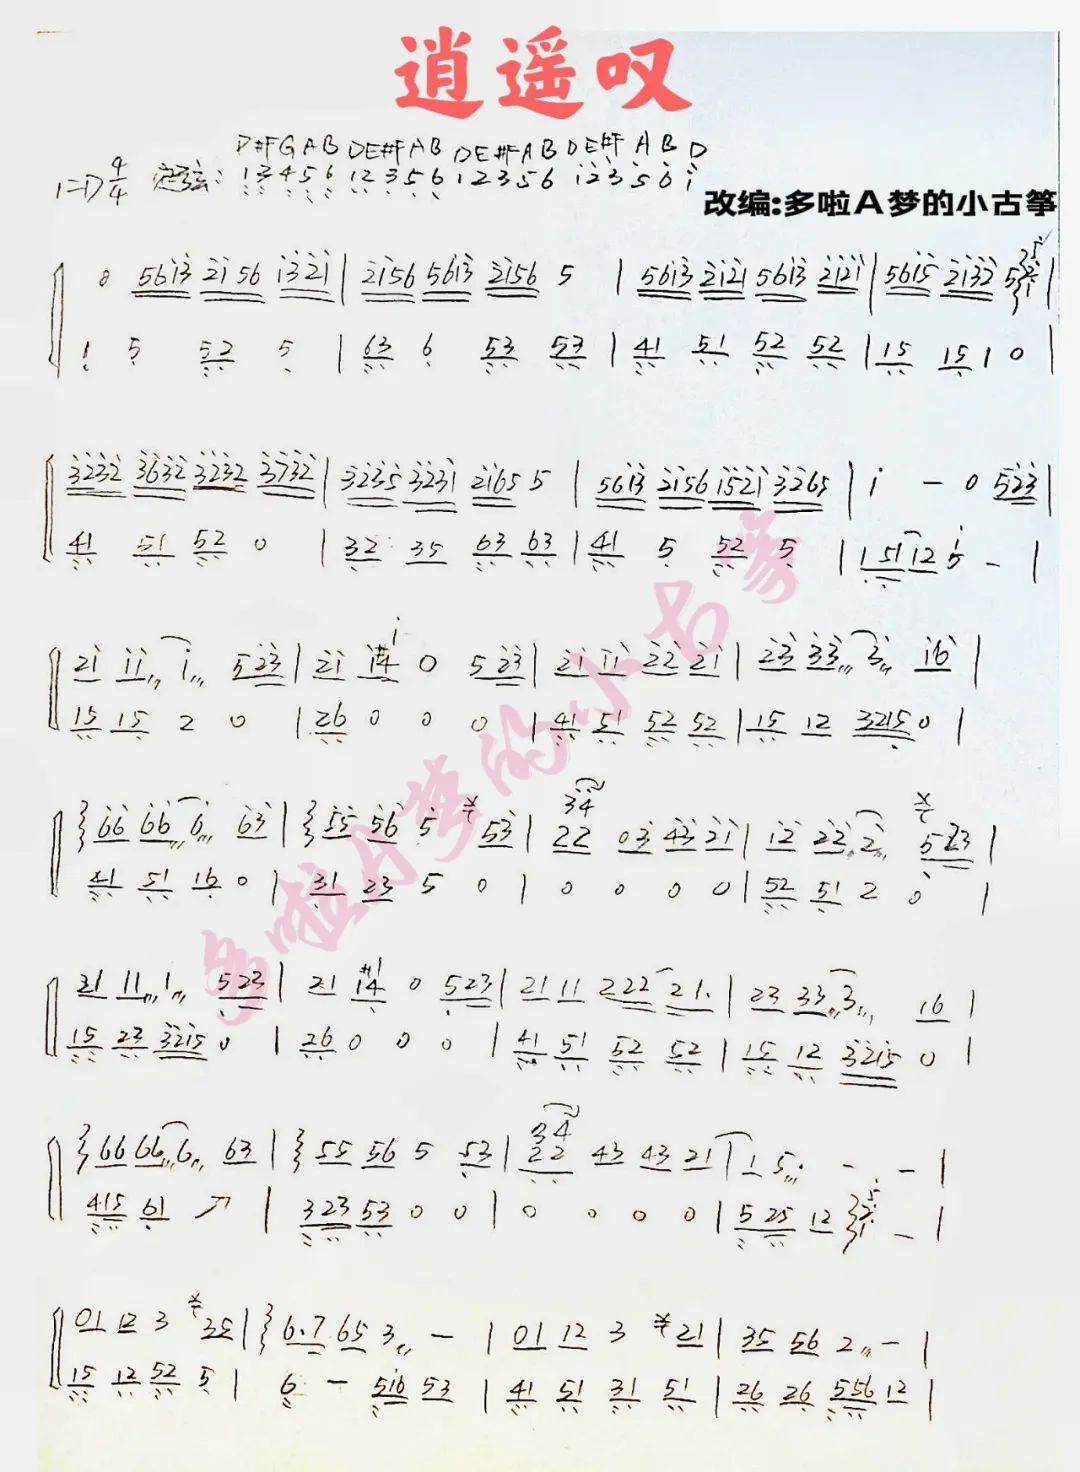 逍遥叹
D#FGAB DE#FAB DE#FAB DE#F A B D
1=D 4/4 定弦: 1 3 4 5 6 1 2 3 5 6 1 2 3 5 6 1 2 3 5 6 i
改编:多啦A梦的小古筝
0 5613 2156 1321 | 2156 5613 2156 5 | 5613 2121 5613 2121 | 5615 2132 5 |
1 5 52 5 | 63 6 53 53 | 41 51 52 52 | 15 15 1 0 |
3232 3632 3232 3732 | 3235 3231 2165 5 | 5613 2156 1521 3265 | i - 0 523 |
41 51 52 0 | 32 35 63 63 | 41 5 52 5 | 1 51 12 5 - |
21 11 1 523 | 21 0 5 23 | 21 11 22 21 | 23 33 3 16 |
15 15 2 0 | 26 0 0 0 | 41 51 52 52 | 15 12 3215 0 |
34
66 66 6 63 | 55 56 5 53 | 22 03 43 21 | 12 22 2 523 |
41 51 16 0 | 31 23 5 0 | 0 0 0 0 | 52 51 2 0 |
21 11 1 523 | 21 14 0 523 | 21 11 222 21. | 23 33 3 16 |
15 23 3215 0 | 26 0 0 0 | 41 51 52 52 | 15 12 3215 0 |
34
66 66 6 63 | 55 56 5 53 | 22 43 43 21 | 1 5 - - |
415 61 | 323 53 0 0 | 0 0 0 0 | 5 25 12 - |
01 12 3 | 6.7 65 3 - | 01 12 3 21 | 35 56 2 - |
15 12 52 5 | 6 - 516 53 | 41 51 31 51 | 26 26 556 12 |
多啦A梦的小古筝